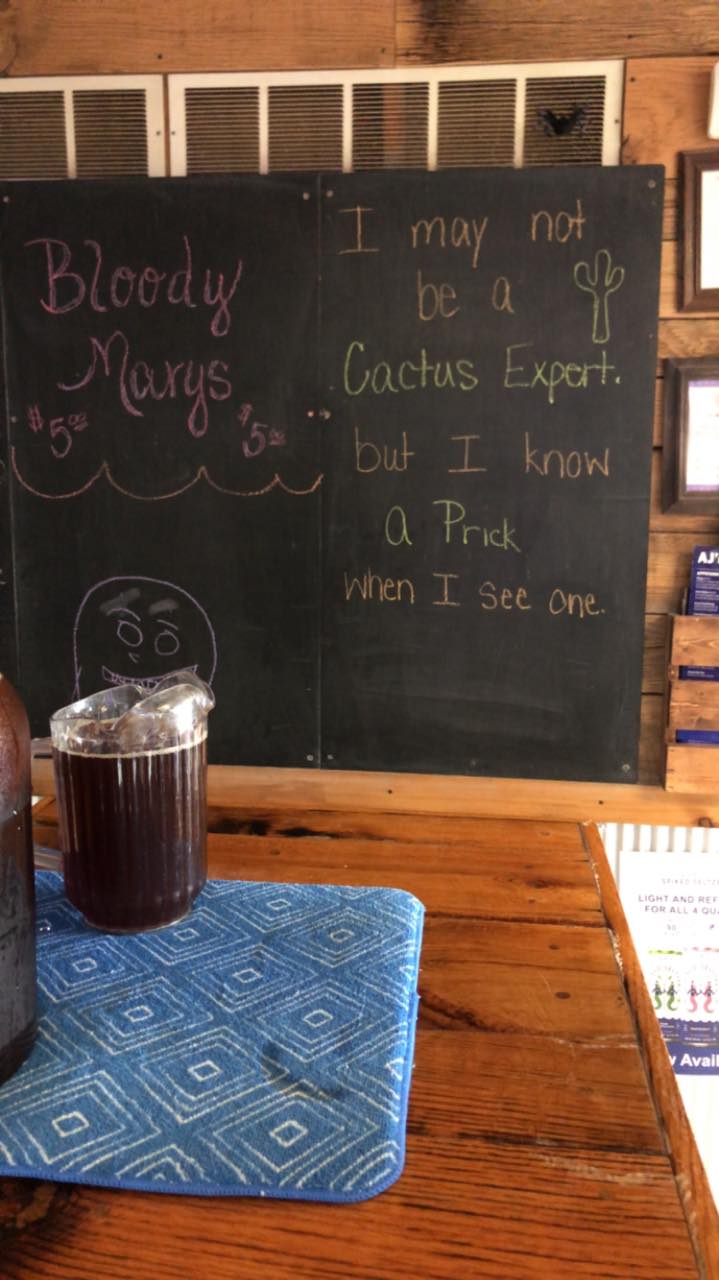 Bloody
Marys
$5.00 $5.00
I may not
be a
Cactus Expert.
but I know
a Prick
when I see one.
AJ'
SPIKED SELTZE
LIGHT AND REF
FOR ALL 4 QU
Avail